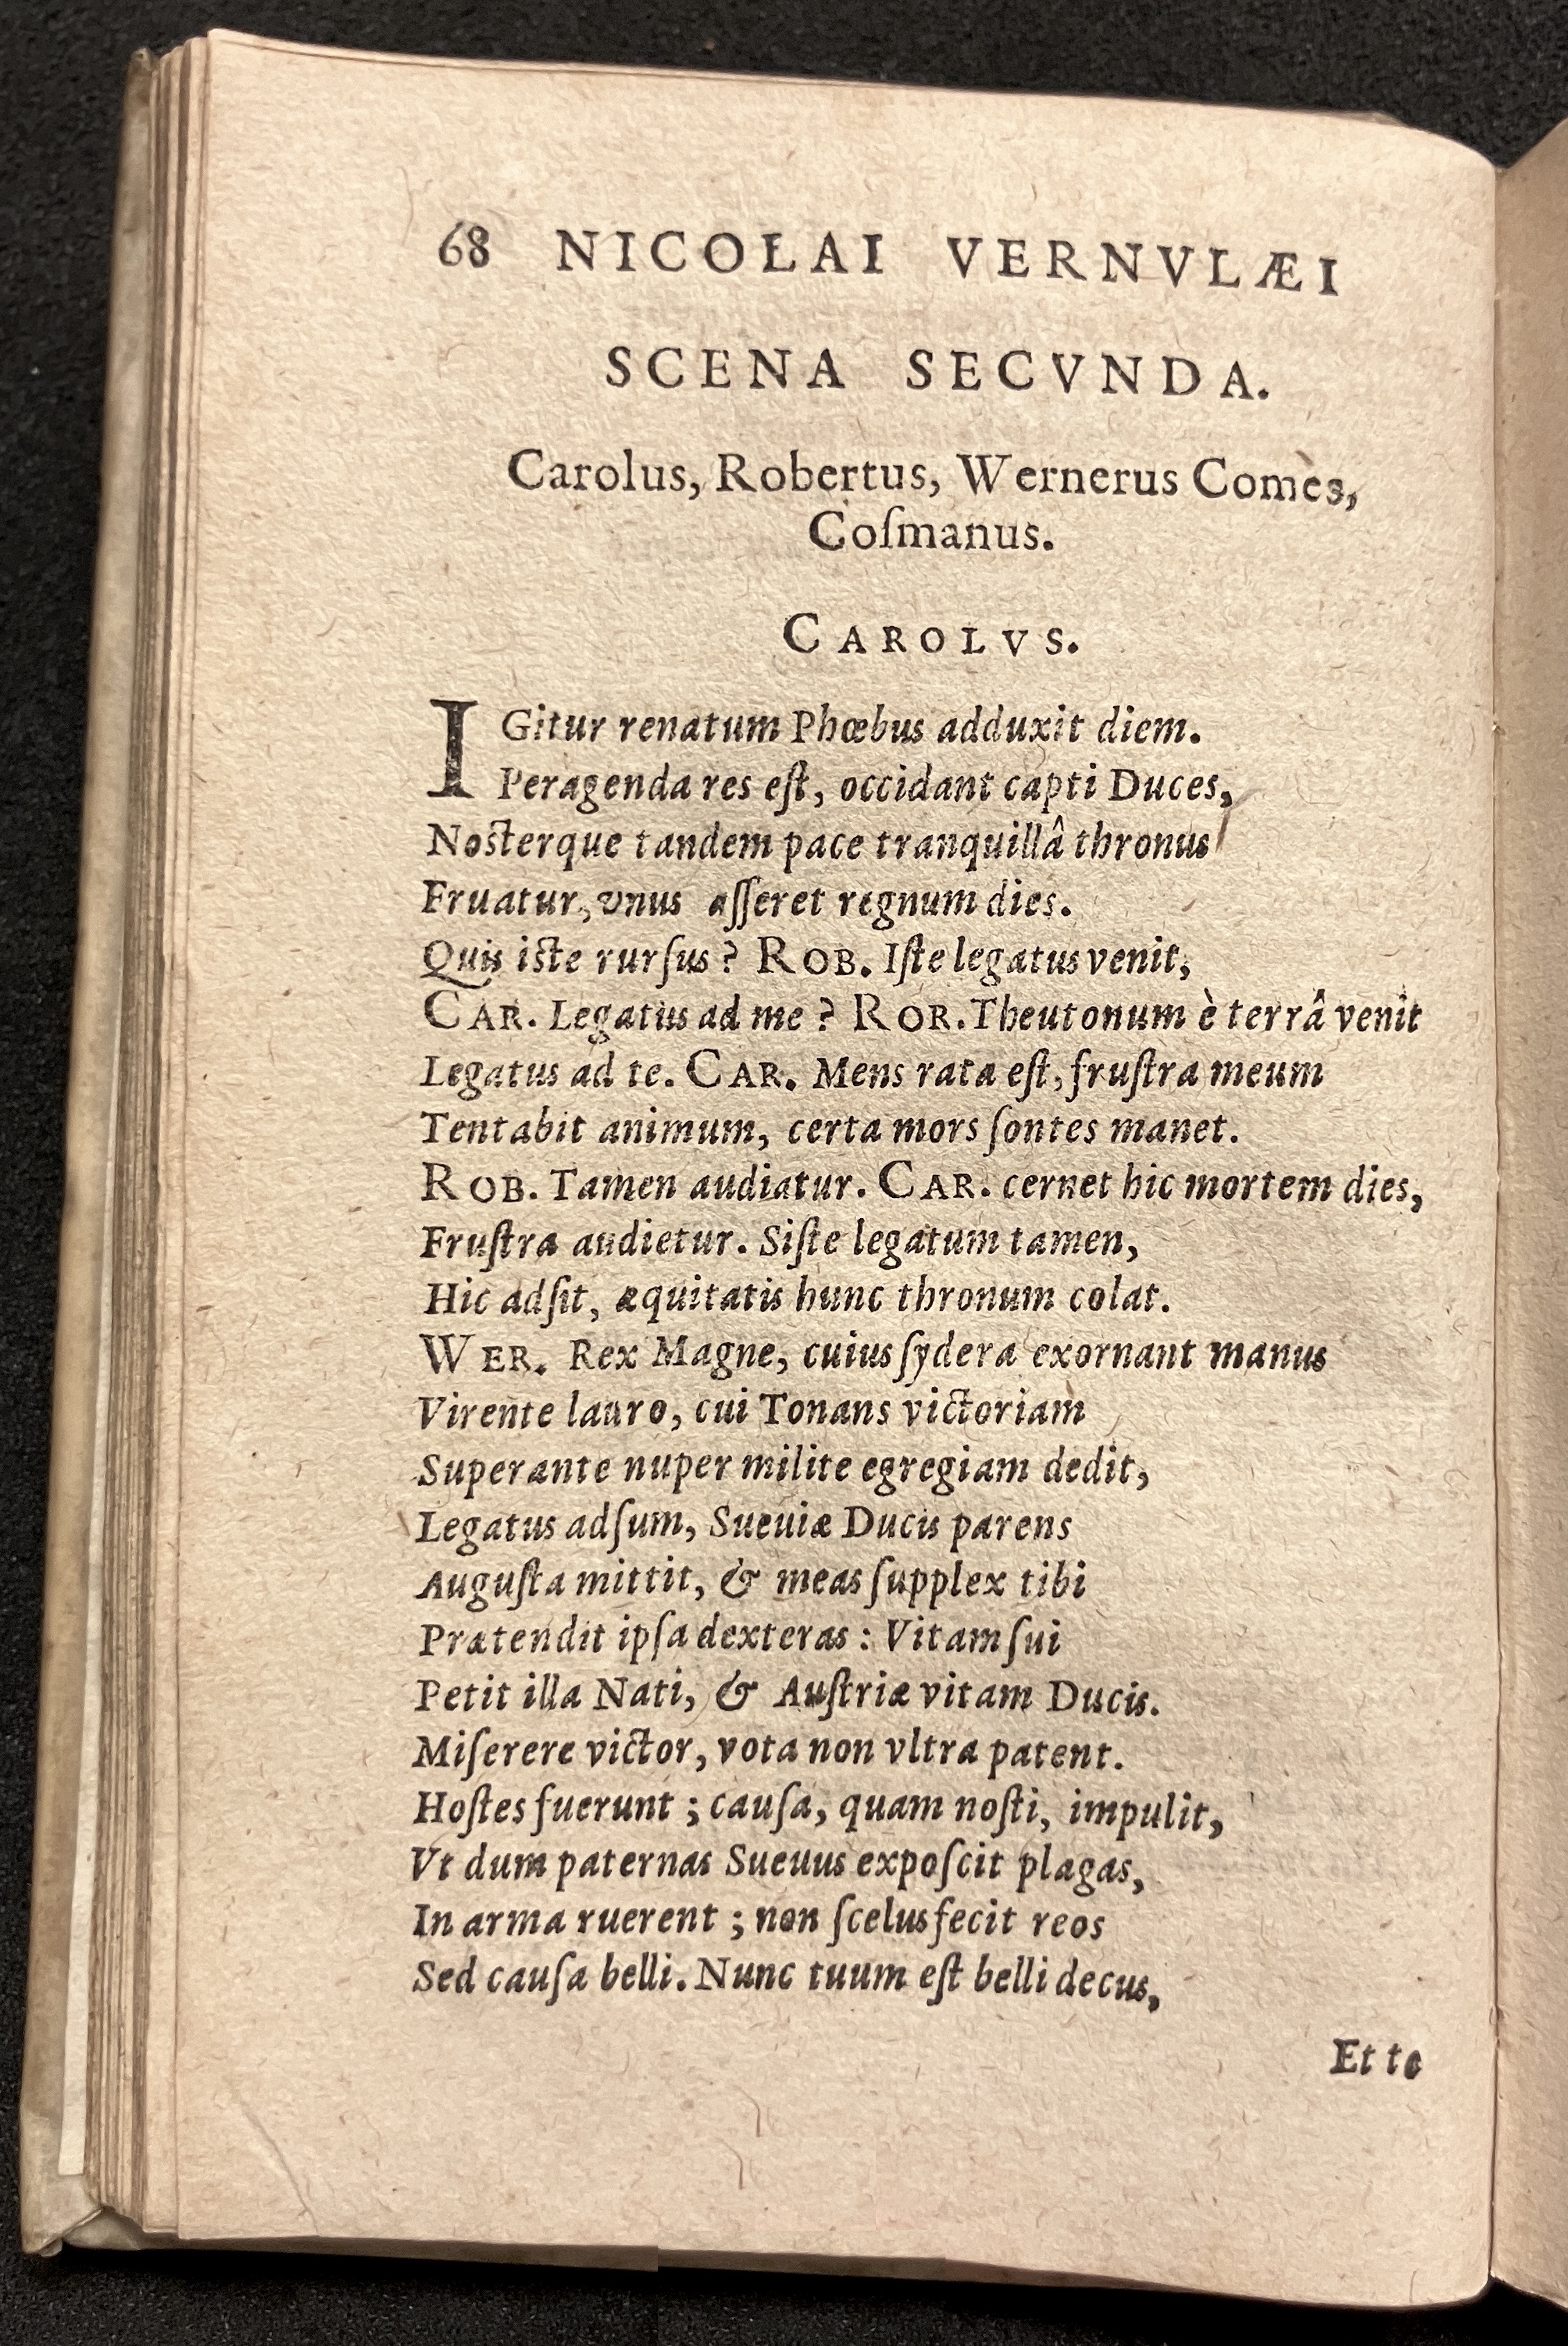 68 NICOLAI VERNVLÆI
SCENA SECVNDA.
Carolus, Robertus, Wernerus Comes,
Coſmanus.
CAROLVS.
IGitur renatum Phœbus adduxit diem.
Peragenda res eſt, occidant capti Duces,
Nosterque tandem pace tranquillâ thronus
Fruatur, vnus aſſeret regnum dies.
Quis iste rurſus? ROB. Iſte legatus venit,
CAR. Legatus ad me? ROR. Theutonum è terrâ venit
Legatus ad te. CAR. Mens rata eſt, fruſtra meum
Tentabit animum, certa mors ſontes manet.
ROB. Tamen audiatur. CAR. cernet hic mortem dies,
Fruſtra audietur. Siſte legatum tamen,
Hic adſit, æquitatis hunc thronum colat.
WER. Rex Magne, cuius ſydera exornant manus
Virente lauro, cui Tonans victoriam
Superante nuper milite egregiam dedit,
Legatus adſum, Sueuiæ Ducis parens
Auguſta mittit, & meas ſupplex tibi
Prætendit ipſa dexteras: Vitam ſui
Petit illa Nati, & Auſtriæ vitam Ducis.
Miſerere victor, vota non vltra patent.
Hoſtes fuerunt; cauſa, quam noſti, impulit,
Vt dum paternas Sueuus expoſcit plagas,
In arma ruerent; non ſcelus fecit reos
Sed cauſa belli. Nunc tuum eſt belli decus,
Et te